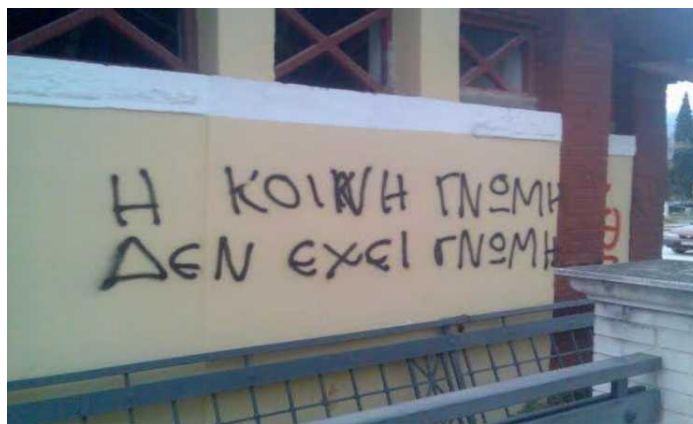 Η ΚΟΙΝΗ ΓΝΩΜΗ
ΔΕΝ ΕΧΕΙ ΓΝΩΜΗ